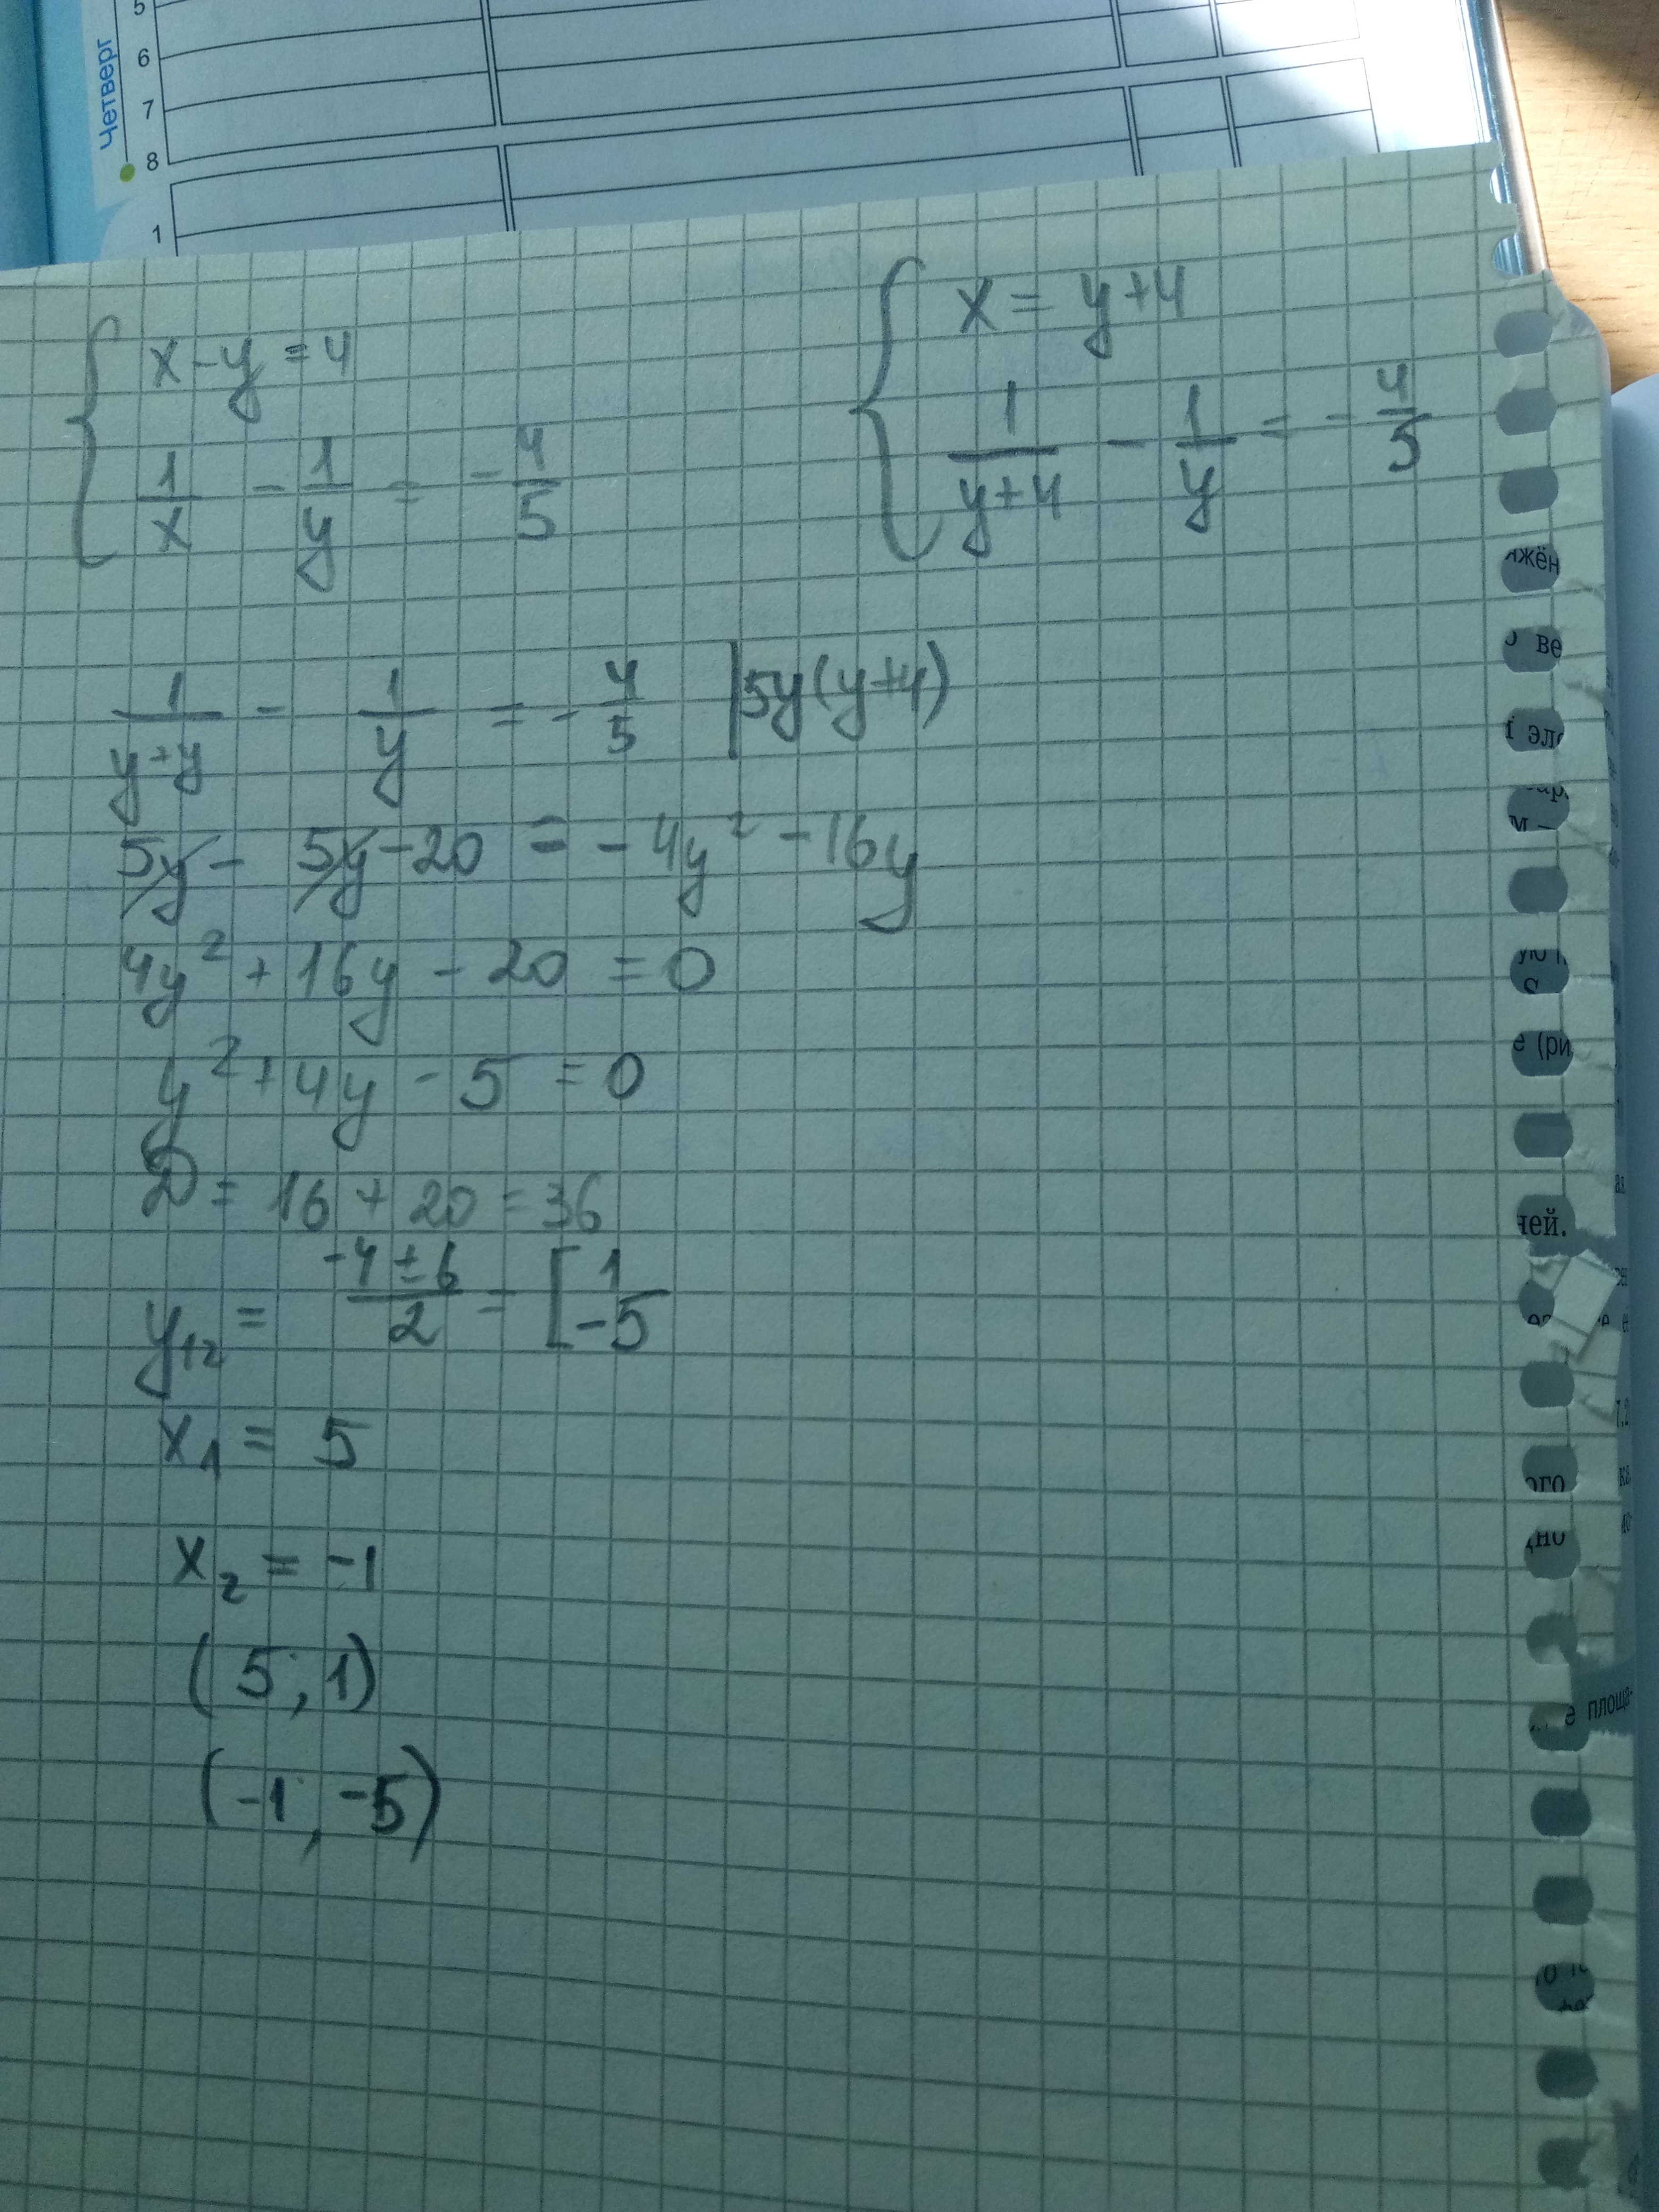 Четверг
5
6
7
8
1
{ x - y = 4
1/x - 1/y = - 4/5
{ x = y + 4
1/(y+4) - 1/y = - 4/5
1/(y+y) - 1/y = - 4/5 | 5y(y+4)
5y - 5y - 20 = - 4y² - 16y
4y² + 16y - 20 = 0
y² + 4y - 5 = 0
D = 16 + 20 = 36
y₁₂ = (-4 ± 6)/2 = [ 1 -5
x₁ = 5
x₂ = -1
(5; 1)
(-1; -5)
ве
е (ри
чей.
ого
дно
е площа-